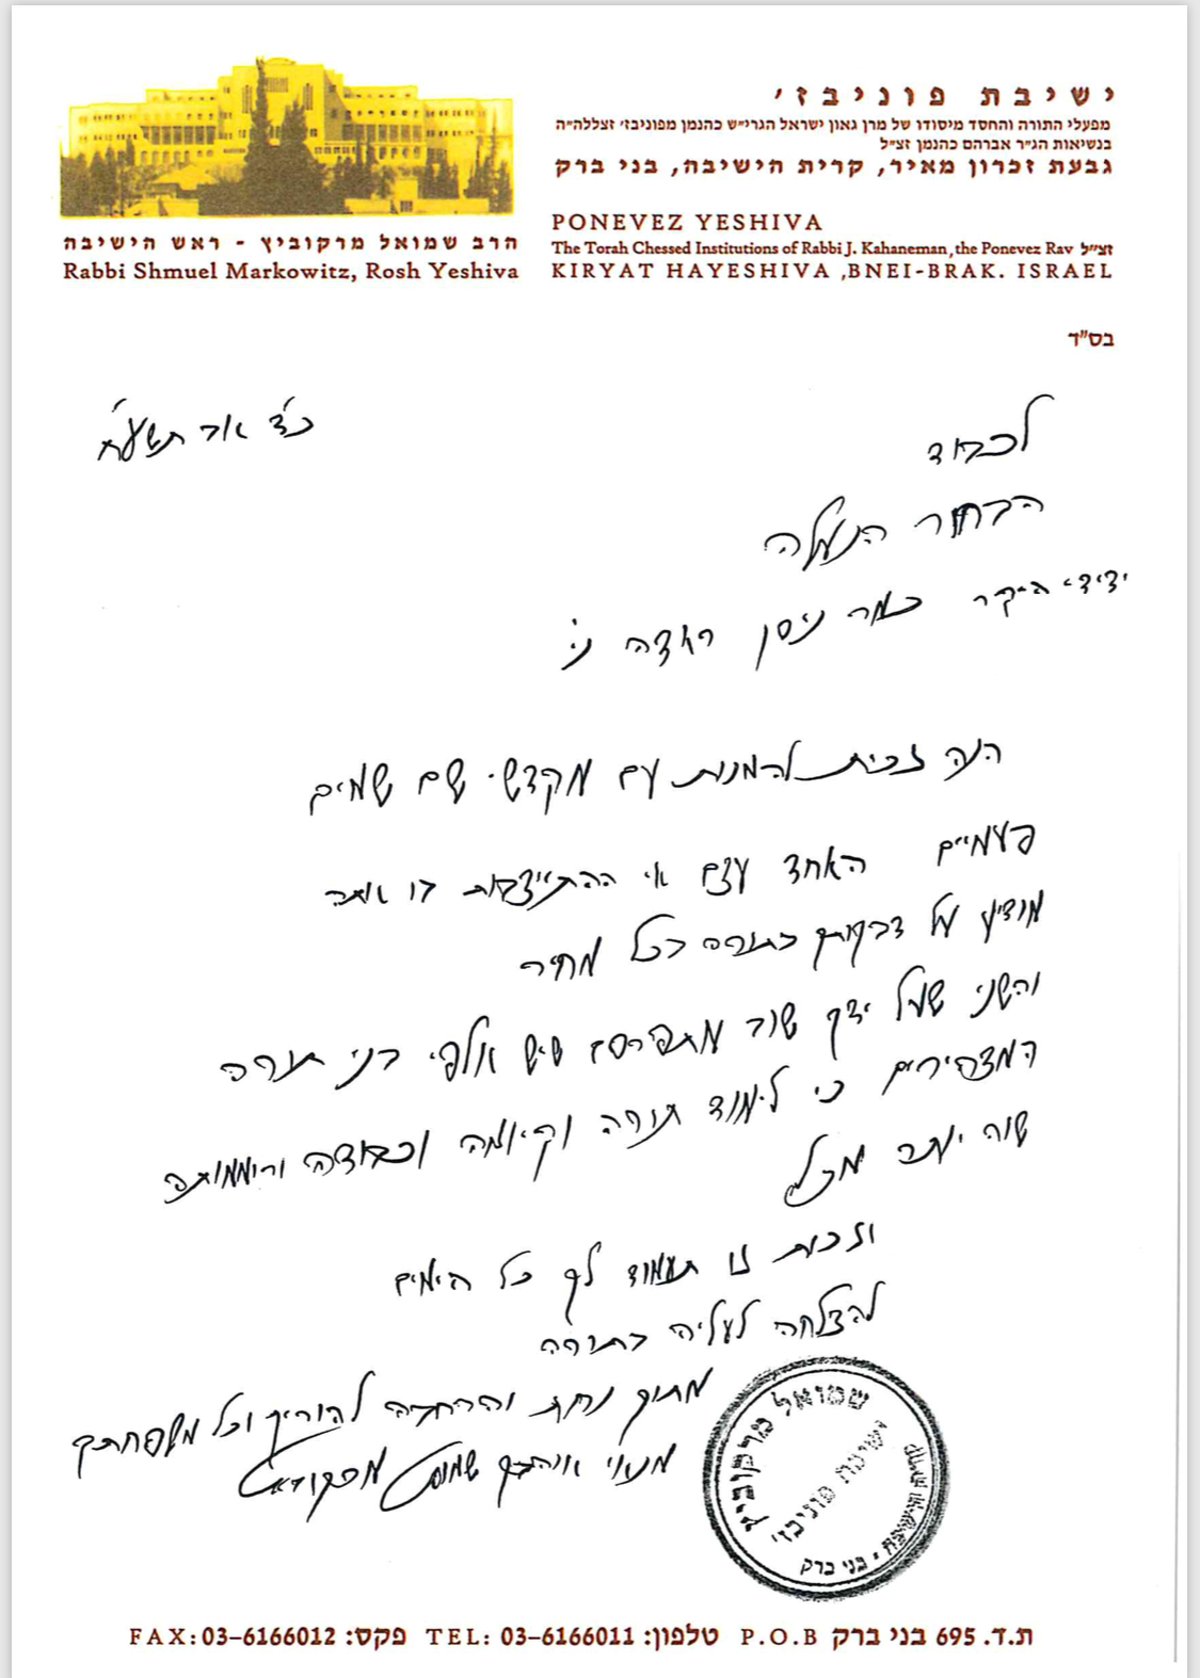 ישיבת פוניבז׳
מפעלי התורה והחסד מיסודו של מרן גאון ישראל הגרי״ש כהנמן מפוניבז׳ זצללה״ה
בנשיאות הג״ר אברהם כהנמן זצ״ל
גבעת זכרון מאיר, קרית הישיבה, בני ברק
הרב שמואל מרקוביץ - ראש הישיבה
Rabbi Shmuel Markowitz, Rosh Yeshiva
PONEVEZ YESHIVA
The Torah Chessed Institutions of Rabbi J. Kahaneman, the Ponevez Rav זצ״ל
KIRYAT HAYESHIVA ,BNEI-BRAK. ISRAEL
בס״ד
כ״ד אב תשע״ח
לכבוד
הבחור הנעלה
ידידי היקר כמר ניסן ראדה ני׳
הנה זכית להמנות עם מקדשי שם שמים
פעמיים האחד עצם אי ההתייצבות בו אתה
מודיע על דבקותך בתורה בכל מחיר
והשני שעל ידך שוב מתפרסם שיש אלפי בני תורה
המצהירים כי לימוד תורה וקיומה וכבודה ורוממותה
שוה יותר מכל
וזכות זו תעמוד לך כל הימים
להצלחה לעליה בתורה
מתוך נחת והרחבה להוריך וכל משפחתך
מנאי אוהבך שמואל מרקוביץ
שמואל מרקוביץ
ישיבת פוניבז׳
קרית הישיבה • בני ברק
ת.ד. 695 בני ברק P.O.B טלפון: 03-6166011 :TEL פקס: 03-6166012 :FAX